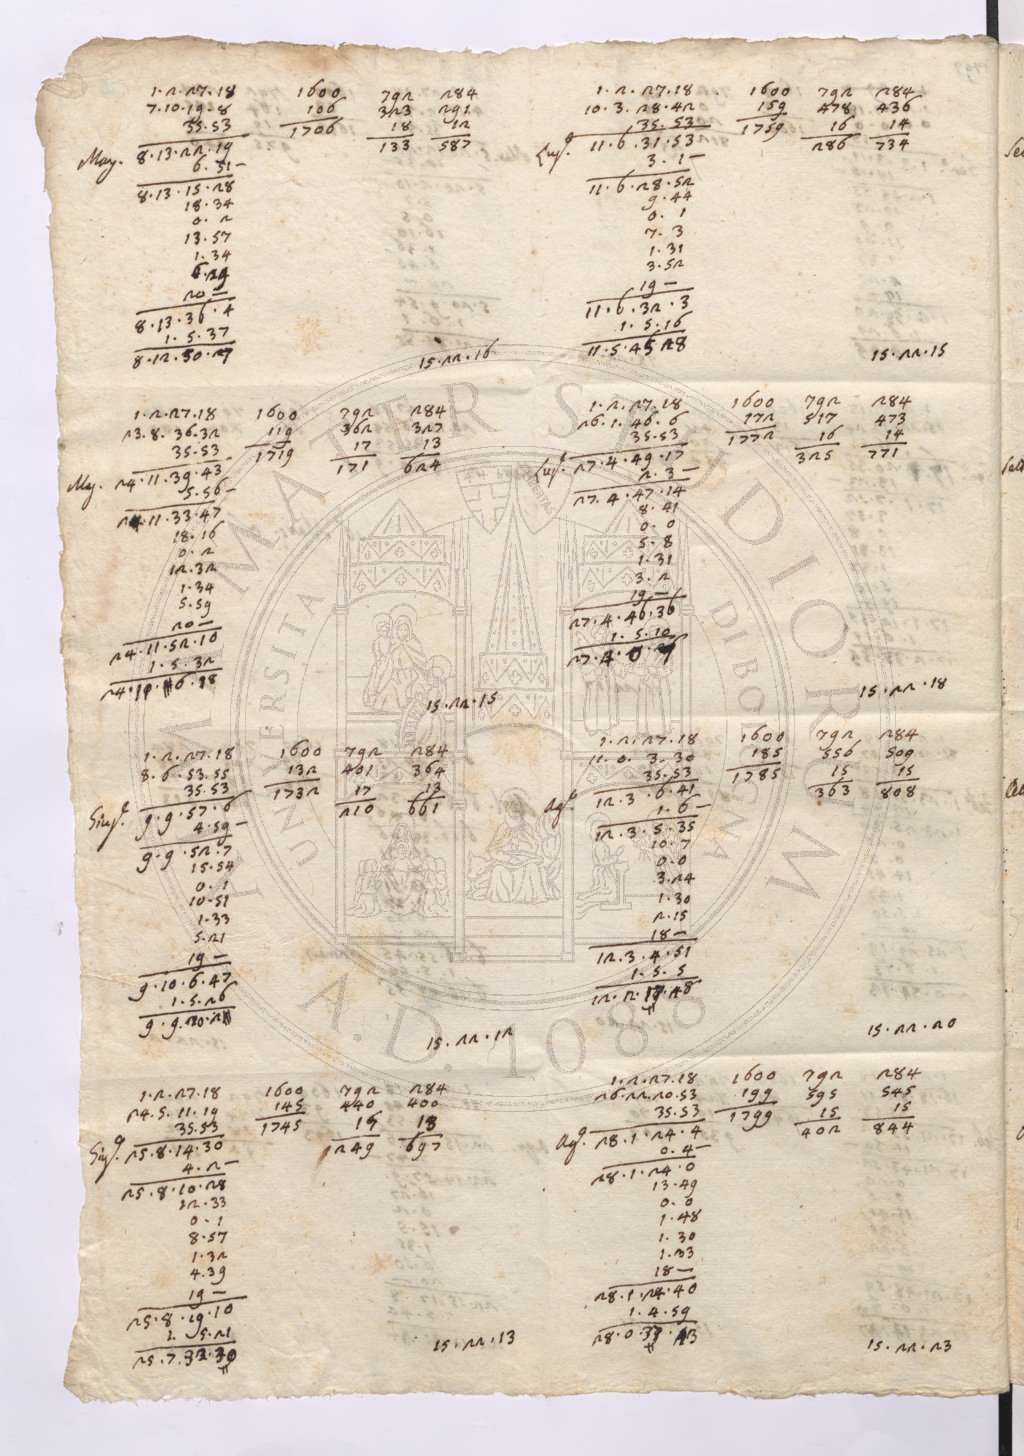 1.2.27.18 1600 792 284
7.10.19.8 106 323 291
35.53 1706 18 12
May. 8.13.22.19 133 587
6.51-
8.13.15.28
18.34
0.2
13.57
1.34
6.29
20-
8.13.36.4
1.5.37
8.12.30.27
15.22.16
1.2.27.18 1600 792 284
10.3.28.42 159 478 436
35.53 1759 16 14
Lug.º 11.6.31.53 286 734
3.1-
11.6.28.52
9.44
0.1
7.3
1.31
3.52
19-
11.6.32.3
1.5.16
11.5.45 28
15.22.15
1.2.27.18 1600 792 284
23.8.36.32 119 362 327
35.53 1719 17 13
May. 24.11.39.43 171 624
5.56-
24.11.33.47
18.16
0.2
12.32
1.34
5.59
20-
24.11.52.10
1.5.32
15.22.15
1.2.27.18 1600 792 284
26.1.46.6 172 517 473
35.53 1772 16 14
Lug.º 27.4.49.17 325 771
2.3-
27.4.47.14
8.41
0.0
5.8
1.31
3.2
19-
27.4.46.36
1.5.10
15.22.18
1.2.27.18 1600 792 284
8.6.53.55 132 401 364
35.53 1732 17 13
Giug.º 9.9.57.6 210 661
4.59-
9.9.52.7
15.54
0.1
10.51
1.33
5.21
19-
9.10.6.47
1.5.26
9.9.20.21
15.22.12
1.2.27.18 1600 792 284
11.0.3.30 185 556 509
35.53 1785 15 15
Ag.º 12.3.6.41 363 808
1.6-
12.3.5.35
10.7
0.0
3.24
1.30
2.15
18-
12.3.4.51
1.5.5
15.22.20
1.2.27.18 1600 792 284
24.5.11.19 145 440 400
35.53 1745 16 13
Giug.º 25.8.14.30 249 697
4.2-
25.8.10.28
12.33
0.1
8.57
1.32
4.39
19-
25.8.19.10
1.5.21
15.22.13
1.2.27.18 1600 792 284
26.22.20.53 199 595 545
35.53 1799 15 15
Ag.º 28.1.24.4 402 844
0.4-
28.1.24.0
13.49
0.0
1.48
1.30
1.33
18-
28.1.24.40
1.4.59
15.22.23
ALMA MATER STUDIORUM
UNIVERSITÀ DI BOLOGNA
A.D. 1088